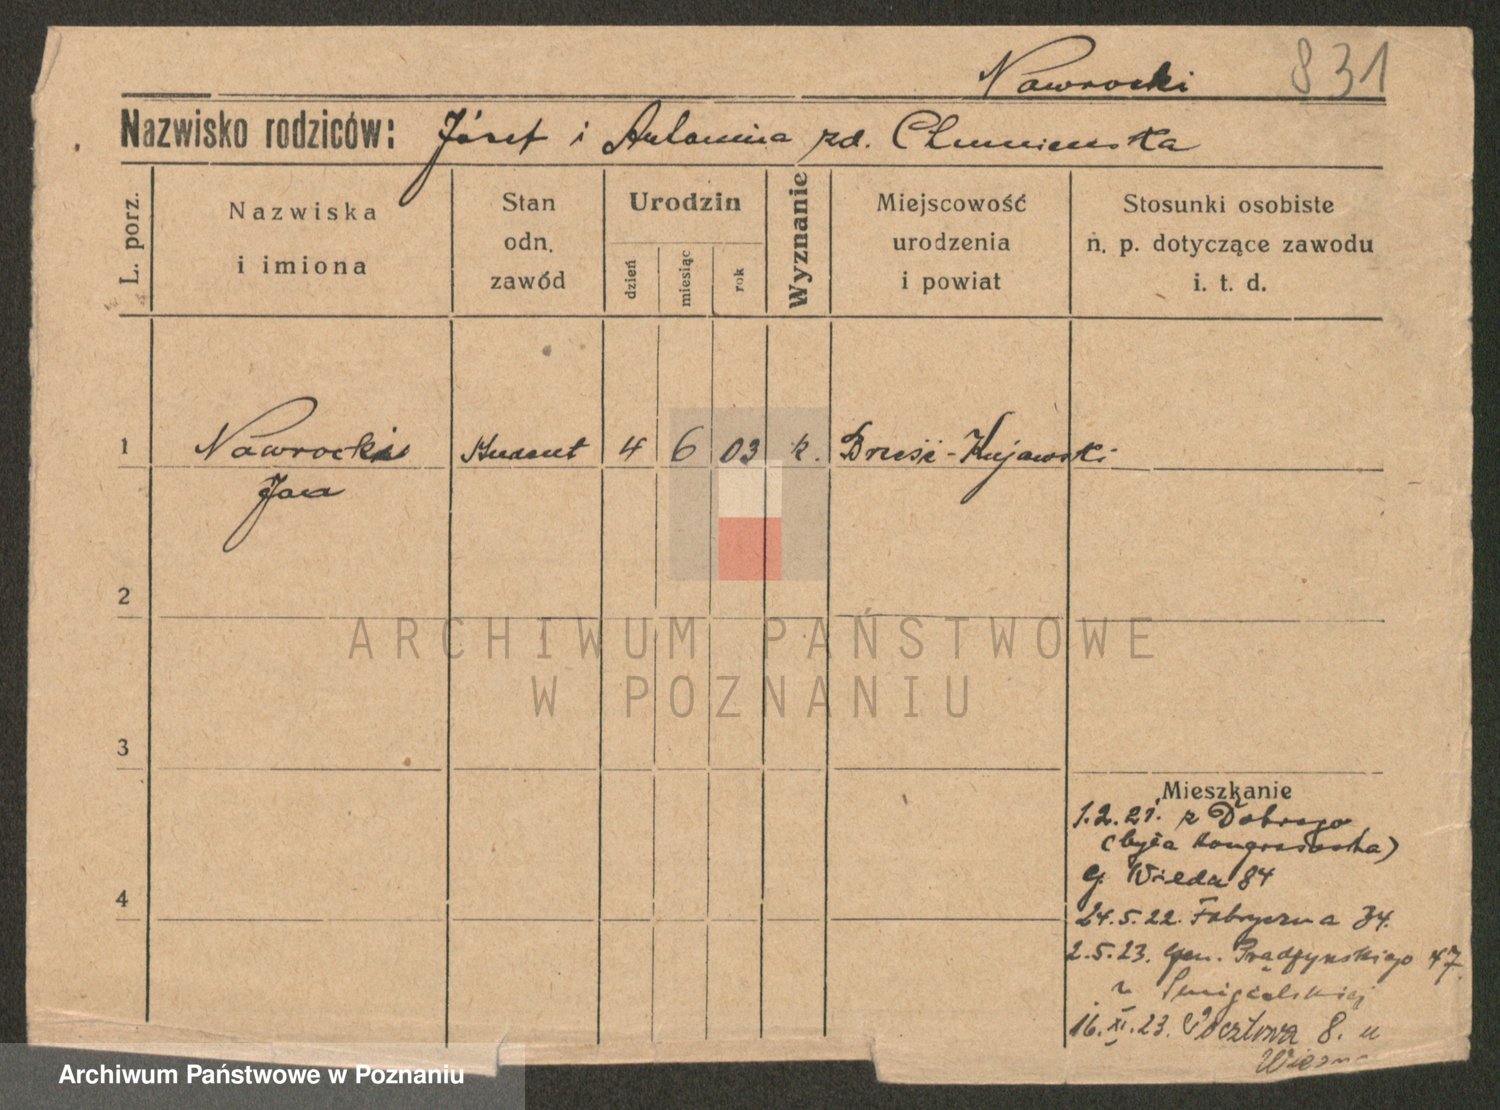 Nawrocki 831
Nazwisko rodziców: Józef i Antonina zd. Chmieleńska
L. porz.
Nazwiska
i imiona
Stan
odn.
zawód
Urodzin
dzień
miesiąc
rok
Wyznanie
Miejscowość
urodzenia
i powiat
Stosunki osobiste
n. p. dotyczące zawodu
i. t. d.
1 Nawrocki Student 4 6 03 k. Brześć-Kujawski
Jan
2
3
4
Mieszkanie
1.2.21. z Dobrego
(była Kongresówka)
G. Wilda 84
24.5.22. Fabryczna 34.
2.5.23. Gen. Prądzyńskiego 47.
u
16.XI.23. Pocztowa 8. u
ARCHIWUM PAŃSTWOWE
W POZNANIU
Archiwum Państwowe w Poznaniu